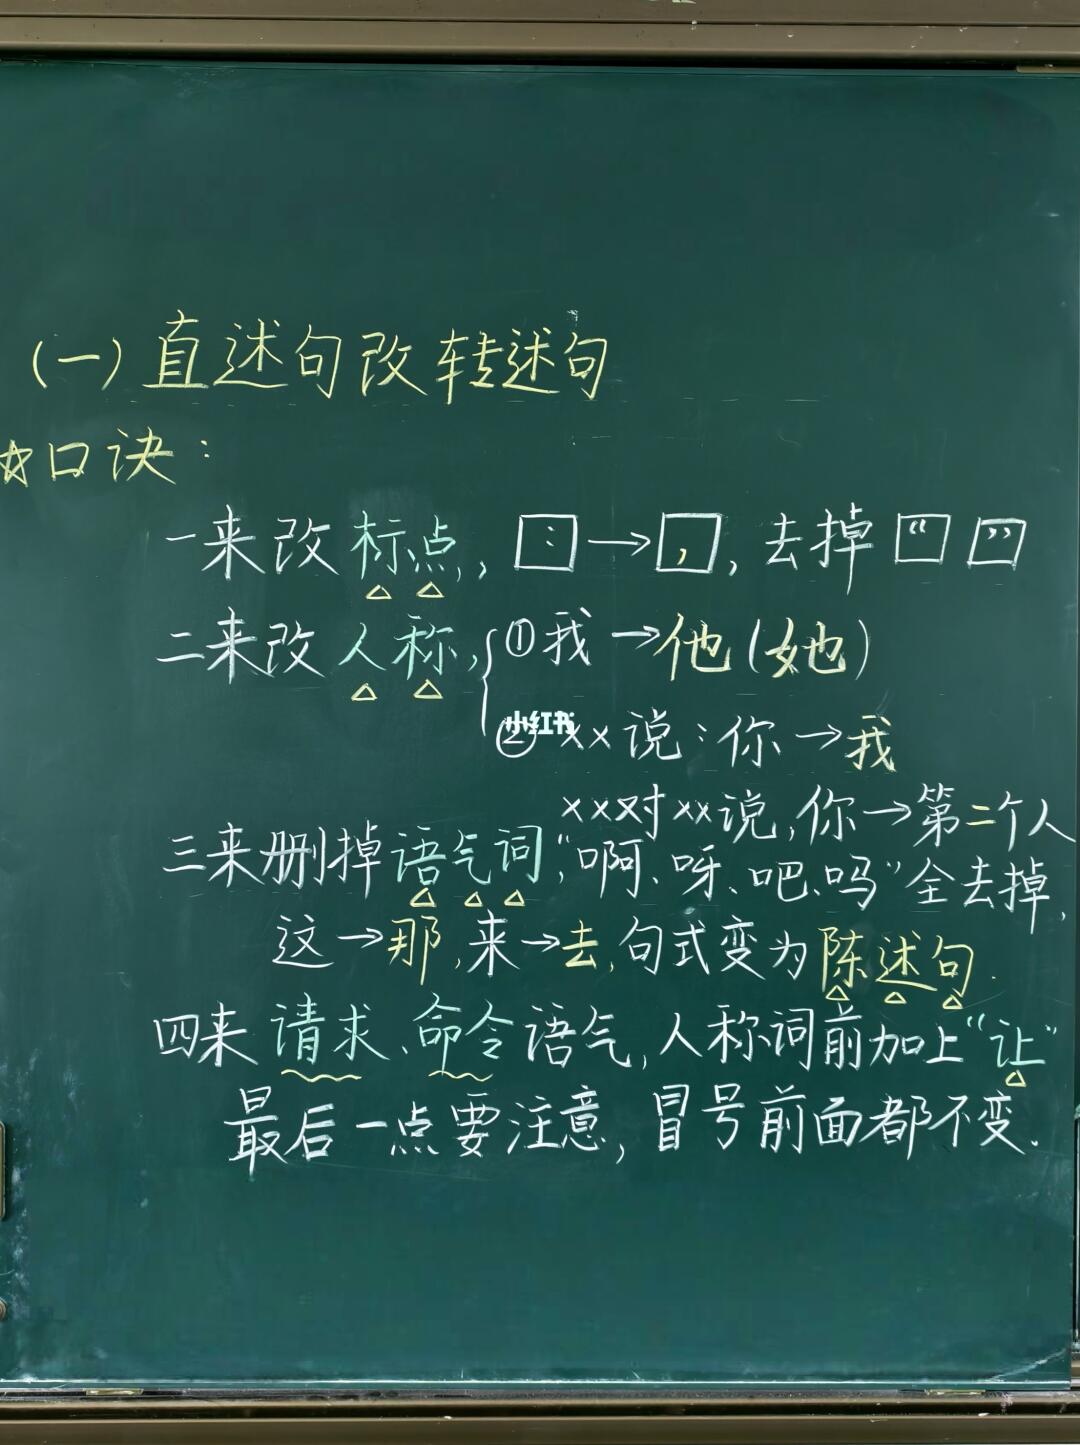 (一)直述句改转述句
☆口诀:
一来改标点,, : → , , 去掉 “ ”
二来改人称, ①我→他(她)
②××说:你→我
××对××说,你→第二个人
三来删掉语气词,“啊、呀、吧、吗”全去掉,
这→那,来→去,句式变为陈述句.
四来请求、命令语气,人称词前加上“让”
最后一点要注意,冒号前面都不变.
小红书